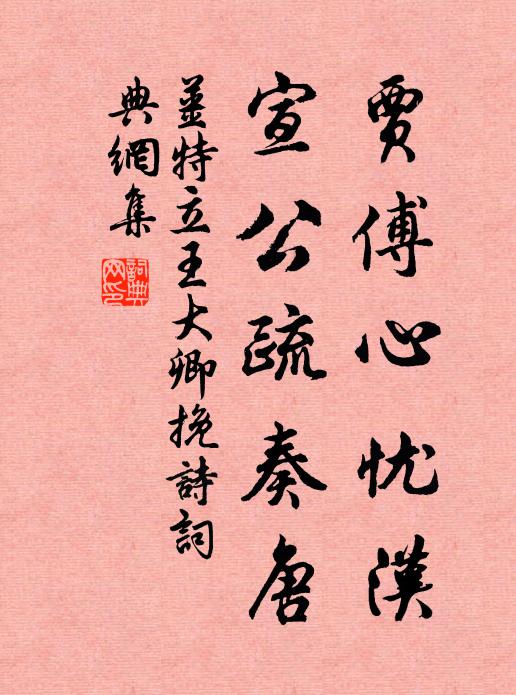 贾傅心忧漢
宣公疏奏唐
姜特立王大卿挽詩詞
典網集
詞典
网印